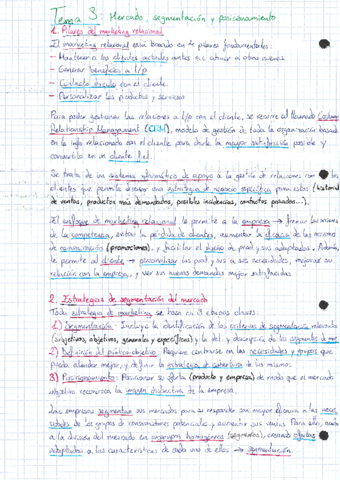 Tema 3: Mercado, segmentación y posicionamiento
1. Pilares del marketing relacional
El marketing relacional está basado en 4 pilares fundamentales:
- Mantener a los clientes actuales antes que atraer a otros nuevos
- Generar beneficios a l/p
- Contacto directo con el cliente
- Personalizar los productos y servicios
Para poder gestionar las relaciones a l/p con el cliente, se recurre al llamado Customer
Relationship Management (CRM), modelo de gestión de toda la organización basada
en la info relacionada con el cliente para darle la mayor satisfacción posible y
convertirlo en un cliente fiel.
Se trata de un sistema informático de apoyo a la gestión de relaciones con los
clientes que permite diseñar una estrategia de negocio específica para estos (historial
de ventas, productos más demandados, posibles incidencias, contactos pasados...).
El enfoque de marketing relacional le permite a la empresa → frenar las acciones
de la competencia, evitar la pérdida de clientes, aumentar la eficacia de las acciones
de comunicación (promociones), y facilitar el diseño de prod y sus adaptados. Además,
le permite al cliente → personalizar los prod y ss a sus necesidades, mejorar su
relación con la empresa, y ver sus nuevas demandas mejor satisfechas
2. Estrategias de segmentación del mercado
Toda estrategia de marketing se basa en 3 etapas claves:
1) Segmentación: Incluye la identificación de los criterios de segmentación relevantes
(subjetivos, objetivos, generales y específicos) y la del. y descripción de los segmentos de mdo
2) Definición del público objetivo: Requiere centrarse en las necesidades y grupos que
pueda atender mejor, y definir la estrategia de cobertura de los mismos.
3) Posicionamiento: Posicionar su oferta (producto y empresa) de modo que el mercado
objetivo reconozca la imagen distintiva de la empresa.
Las empresas segmentan sus mercados para responder con mayor eficacia a las nece-
sidades de los grupos de consumidores potenciales, y aumentar sus ventas. Para ello,
a la división del mercado en grupos homogéneos (segmentos), creando ofertas
adaptadas a las características de cada uno de ellos → segmentación